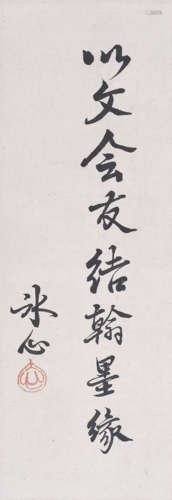 以文会友结翰墨缘
冰心